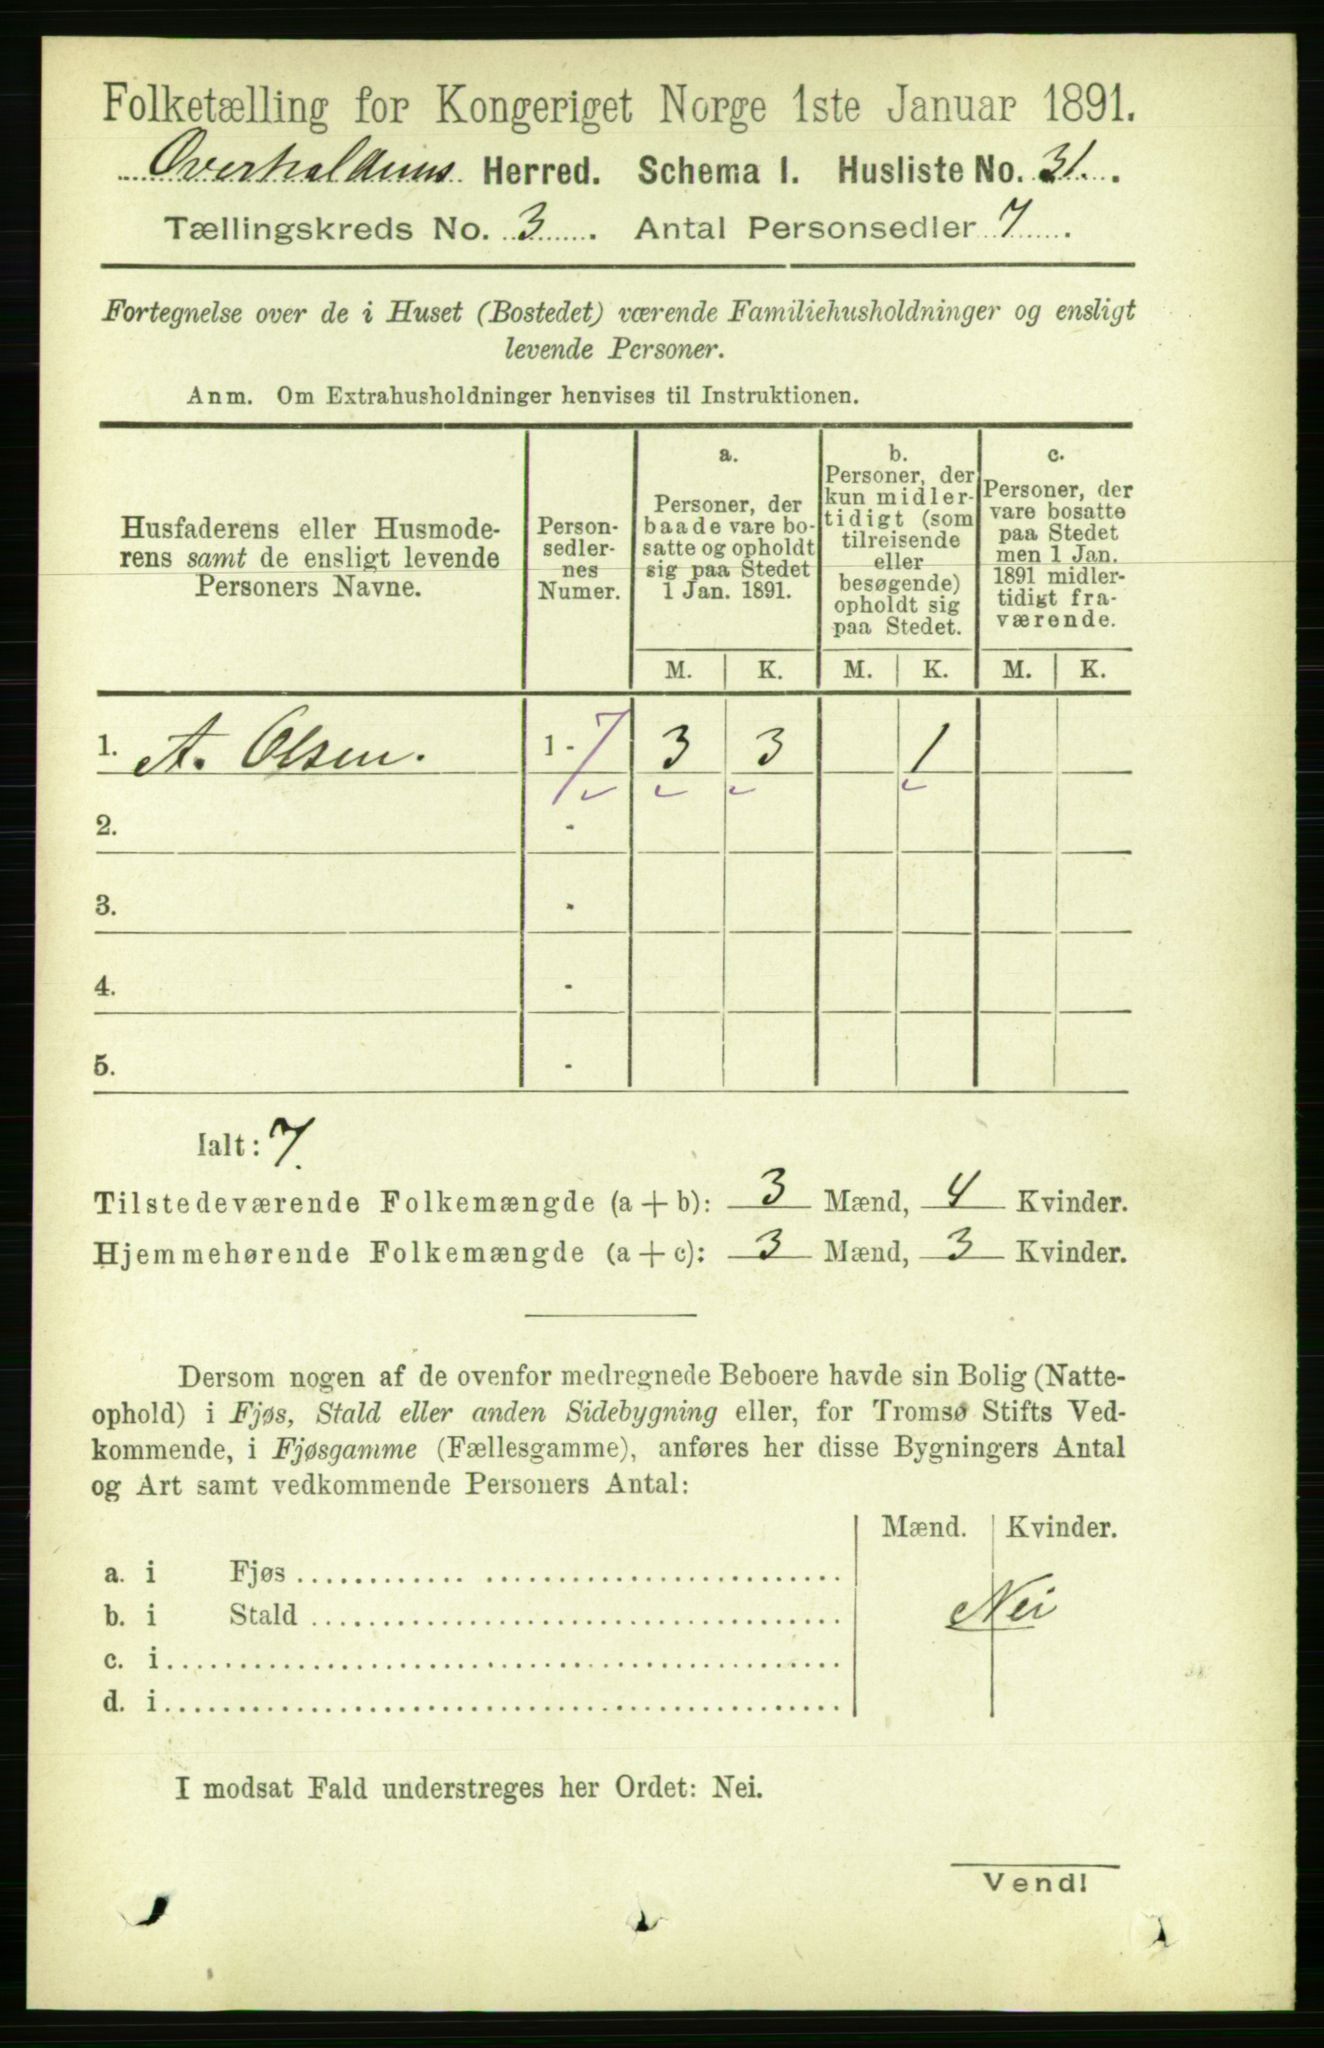 Folketælling for Kongeriget Norge 1ste Januar 1891.
Overhaldens Herred. Schema I. Husliste No. 31.
Tællingskreds No. 3. Antal Personsedler 7.
Fortegnelse over de i Huset (Bostedet) værende Familiehusholdninger og ensligt
levende Personer.
Anm. Om Extrahusholdninger henvises til Instruktionen.
Husfaderens eller Husmode-
rens samt de ensligt levende
Personers Navne.
Person-
sedler-
nes
Numer.
a.
Personer, der
baade vare bo-
satte og opholdt
sig paa Stedet
1 Jan. 1891.
b.
Personer, der
kun midler-
tidigt (som
tilreisende
eller
besøgende)
opholdt sig
paa Stedet.
c.
Personer, der
vare bosatte
paa Stedet
men 1 Jan.
1891 midler-
tidigt fra-
værende.
M. K. M. K. M. K.
1. A. Olsen. 1-7 3 3 1
2. -
3. -
4. -
5. -
Ialt: 7.
Tilstedeværende Folkemængde (a + b): 3 Mænd, 4 Kvinder.
Hjemmehørende Folkemængde (a + c): 3 Mænd, 3 Kvinder.
Dersom nogen af de ovenfor medregnede Beboere havde sin Bolig (Natte-
ophold) i Fjøs, Stald eller anden Sidebygning eller, for Tromsø Stifts Ved-
kommende, i Fjøsgamme (Fællesgamme), anføres her disse Bygningers Antal
og Art samt vedkommende Personers Antal:
Mænd. Kvinder.
a. i Fjøs
b. i Stald Nei
c. i
d. i
I modsat Fald understreges her Ordet: Nei.
Vend!